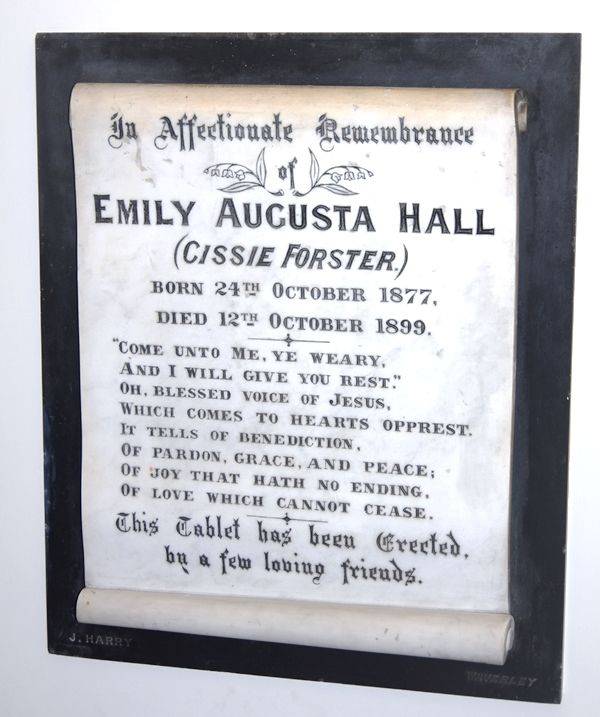 In Affectionate Remembrance
of
EMILY AUGUSTA HALL
(CISSIE FORSTER.)
BORN 24TH OCTOBER 1877,
DIED 12TH OCTOBER 1899.
"COME UNTO ME, YE WEARY,
AND I WILL GIVE YOU REST."
OH, BLESSED VOICE OF JESUS,
WHICH COMES TO HEARTS OPPREST.
IT TELLS OF BENEDICTION,
OF PARDON, GRACE, AND PEACE;
OF JOY THAT HATH NO ENDING,
OF LOVE WHICH CANNOT CEASE.
This Tablet has been Erected,
by a few loving friends.
J. HARRY
WAVERLEY